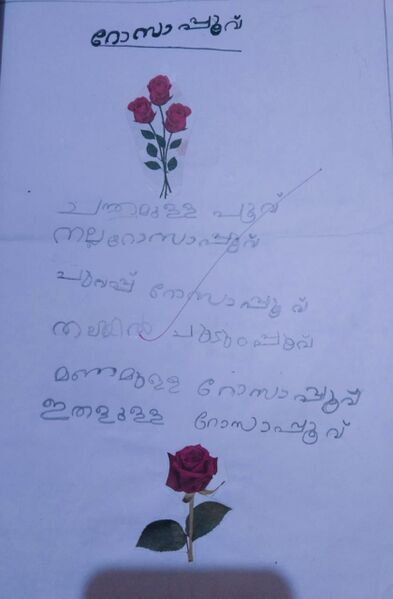 റോസാപ്പൂവ്
ചന്തമുള്ള പൂവ്
നല്ല റോസാപ്പൂവ്
ചുവപ്പ് റോസാപ്പൂവ്
തലയിൽ ചൂടുംപ്പൂവ്
മണമുള്ള റോസാപ്പൂവ്
ഇതളുള്ള റോസാപ്പൂവ്